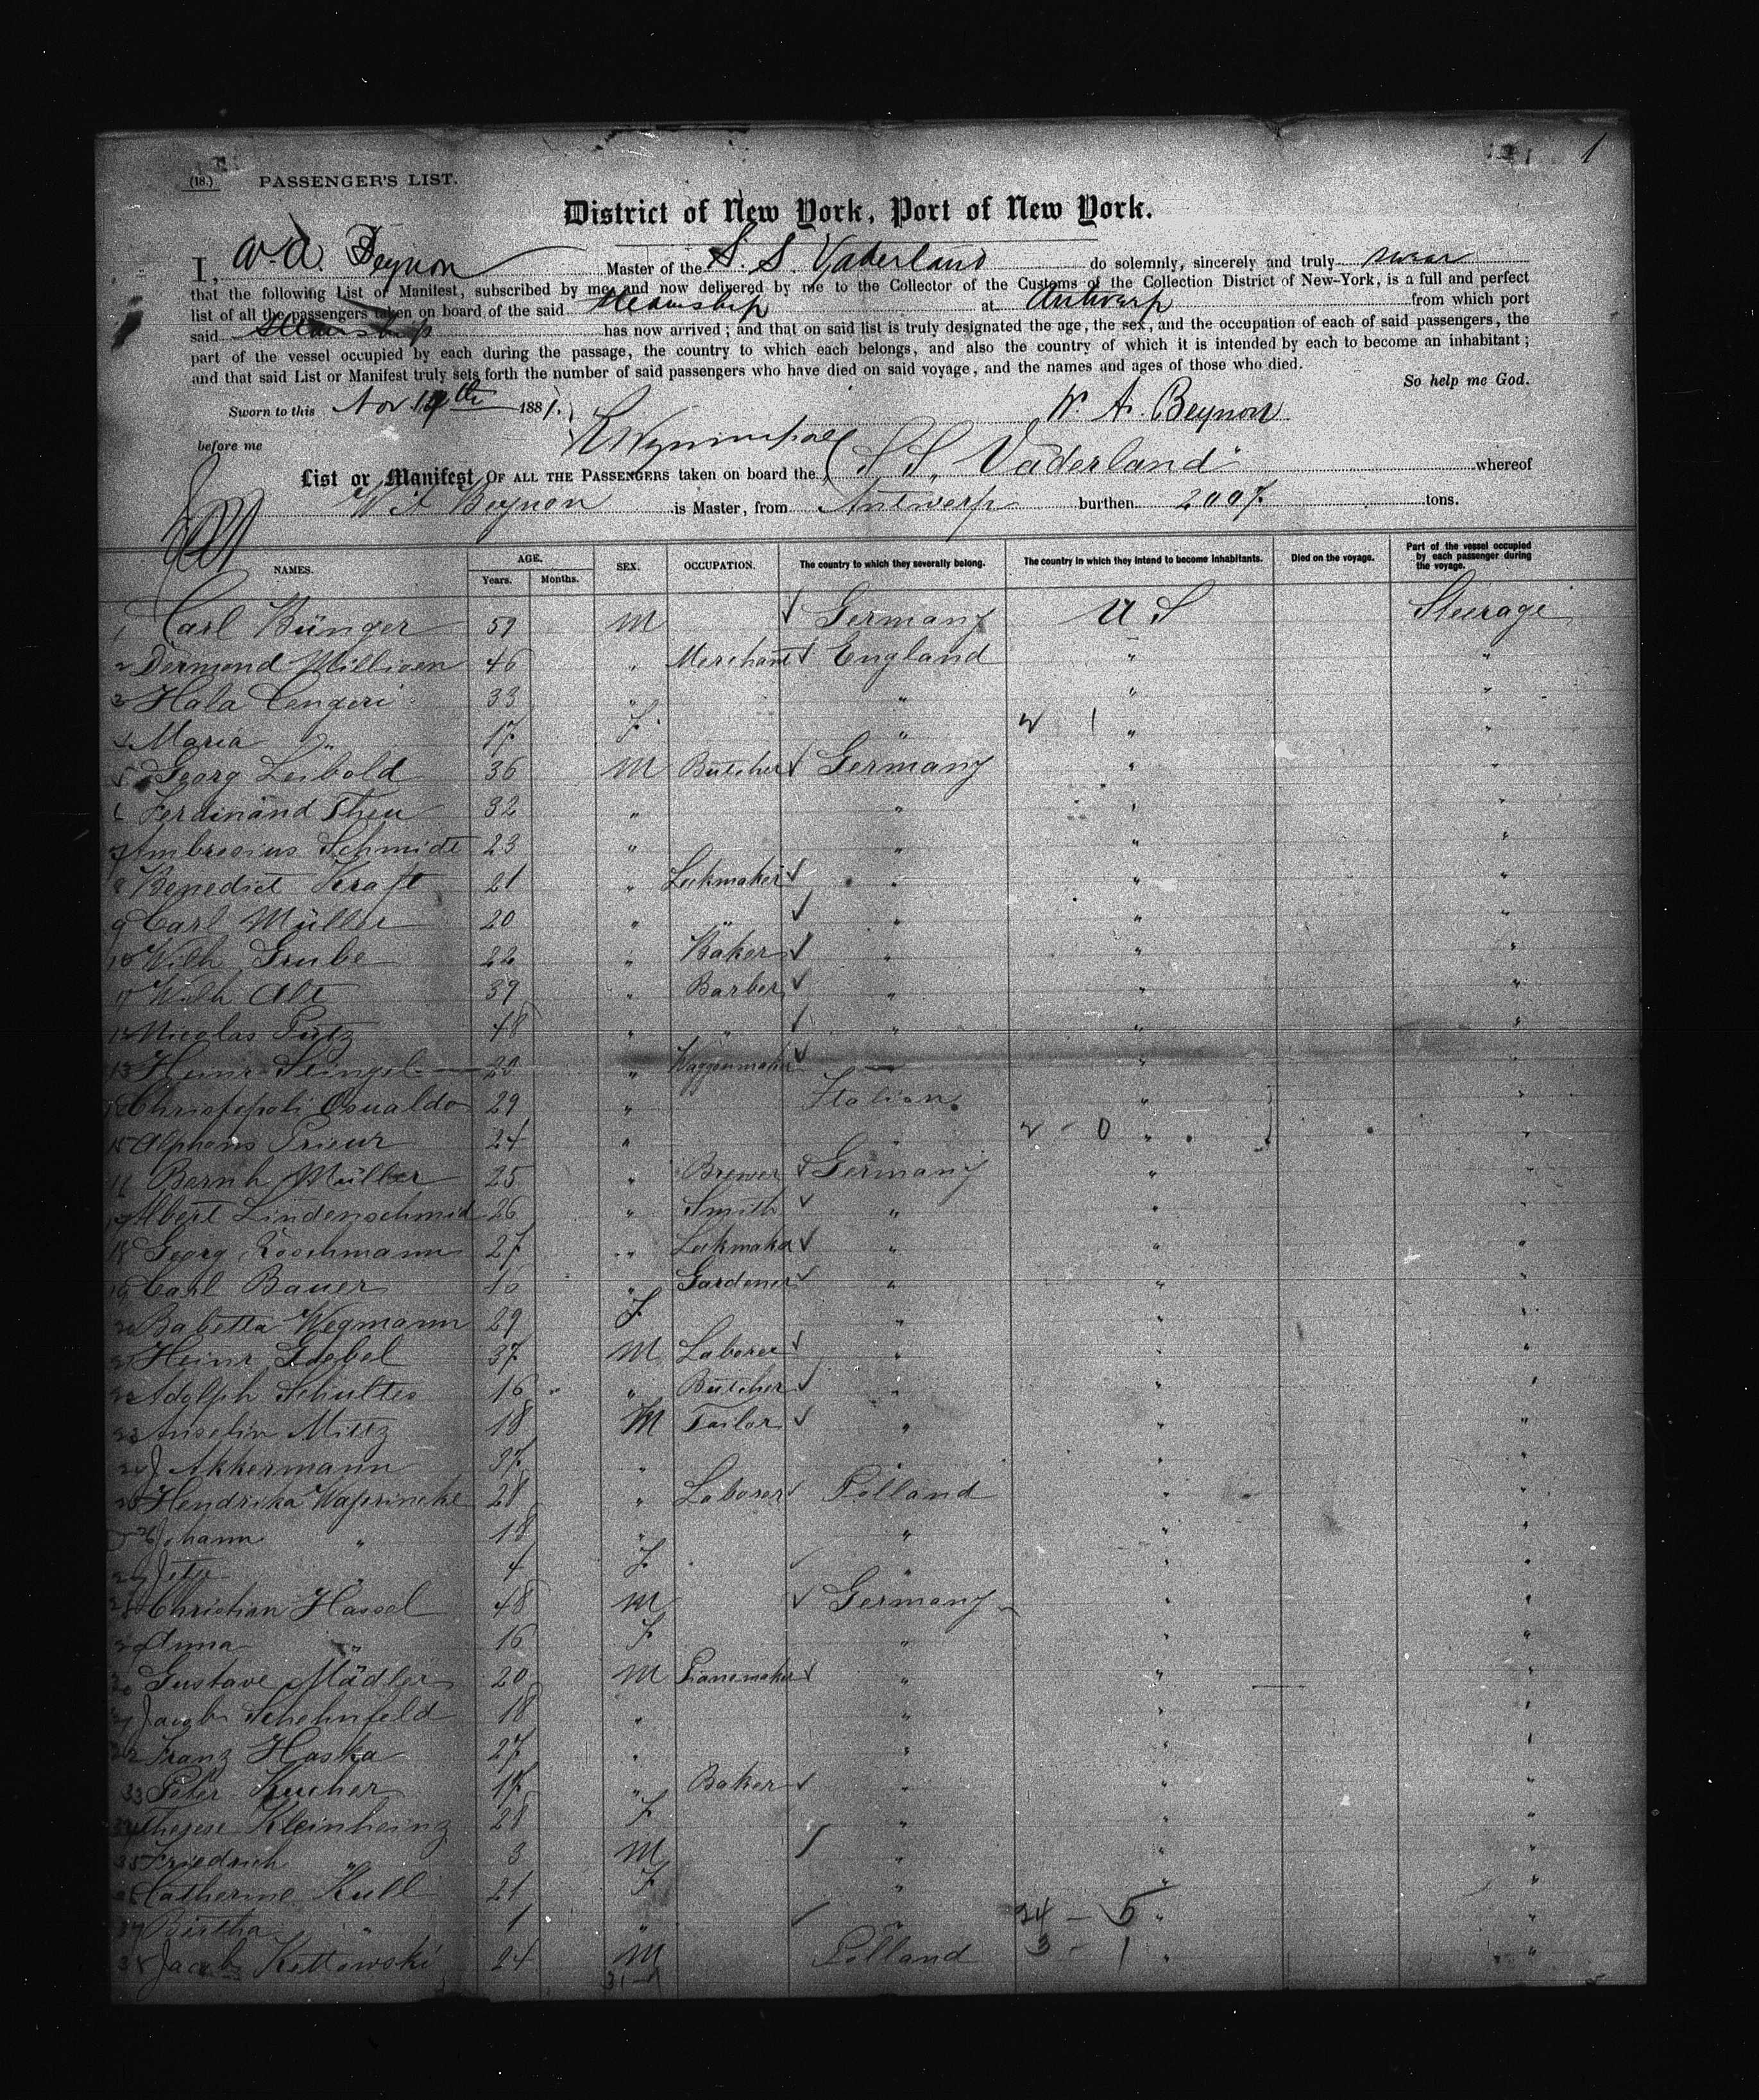 1
(18.) PASSENGER'S LIST.
District of New York, Port of New York.
I, W. A. Beynon Master of the S. S. Vaderland do solemnly, sincerely and truly swear
that the following List or Manifest, subscribed by me, and now delivered by me to the Collector of the Customs of the Collection District of New-York, is a full and perfect
list of all the passengers taken on board of the said Steamship at Antwerp from which port
said Steamship has now arrived; and that on said list is truly designated the age, the sex, and the occupation of each of said passengers, the
part of the vessel occupied by each during the passage, the country to which each belongs, and also the country of which it is intended by each to become an inhabitant;
and that said List or Manifest truly sets forth the number of said passengers who have died on said voyage, and the names and ages of those who died.
So help me God.
Sworn to this Nov 1 th 1881.
W. A. Beynon
before me
List or Manifest OF ALL THE PASSENGERS taken on board the S S "Vaderland" whereof
W A Beynon is Master, from Antwerp burthen 2007 tons.
NAMES. AGE. Years. Months. SEX. OCCUPATION. The country to which they severally belong. The country in which they intend to become inhabitants. Died on the voyage. Part of the vessel occupied by each passenger during the voyage.
1 Carl Bünger 59 M Germany U S Steerage
2 Dermond Milligen 46 " Merchant England " "
3 Hala Cengeri 33 " " " "
4 Maria " 17 F " 2 1 " "
5 Georg Leibold 36 M Butcher Germany " "
6 Ferdinand Theu 32 " " " "
7 Ambrosius Schmidt 23 " " " "
8 Benedict Kraft 21 " Lockmaker " " "
9 Carl Müller 20 " " " " "
10 Wilh Grube 22 " Baker " " "
11 Wilh Alt 39 " Barber " " "
12 Nicolas Pütz 48 " " " " "
13 Heinr Stingel 20 " Waggonmaker " "
14 Christofpoli Osualdo 29 " Italian " "
15 Alphons Prieur 24 " " 2 - 0 " "
16 Barnh Müller 25 " Brewer Germany " "
17 Albert Lindenschmid 26 " Smith " " "
18 Georg Roschmann 27 " Lockmaker " " "
19 Carl Bauer 16 " Gardener " " "
20 Babetta Wegmann 29 F " " "
21 Heinr Goebel 37 M Laborer " " "
22 Adolph Schultes 16 " Butcher " " "
23 Anselm Mietz 18 M Tailor " " "
24 J Akkermann 37 " " " "
25 Hendricka 28 " Laborer Polland " "
26 Johann " 18 " " " "
27 4 F " " "
28 Christian Hassel 48 M Germany " "
29 Anna " 16 F " " "
30 Gustave Mädler 20 M Pianomaker " " "
31 Jacob Schehnfeld 18 " " " "
32 Franz Haska 27 " " " "
33 Peter Kucher 17 " Baker " " "
34 Therese Kleinheinz 28 F " " "
35 Friedrich " 3 M " " "
36 Catherine Kull 21 F " " "
37 Bertha " 1 " " 24 - 5 " "
38 Jacob Kettowski 24 M Polland 3 - 1 " "